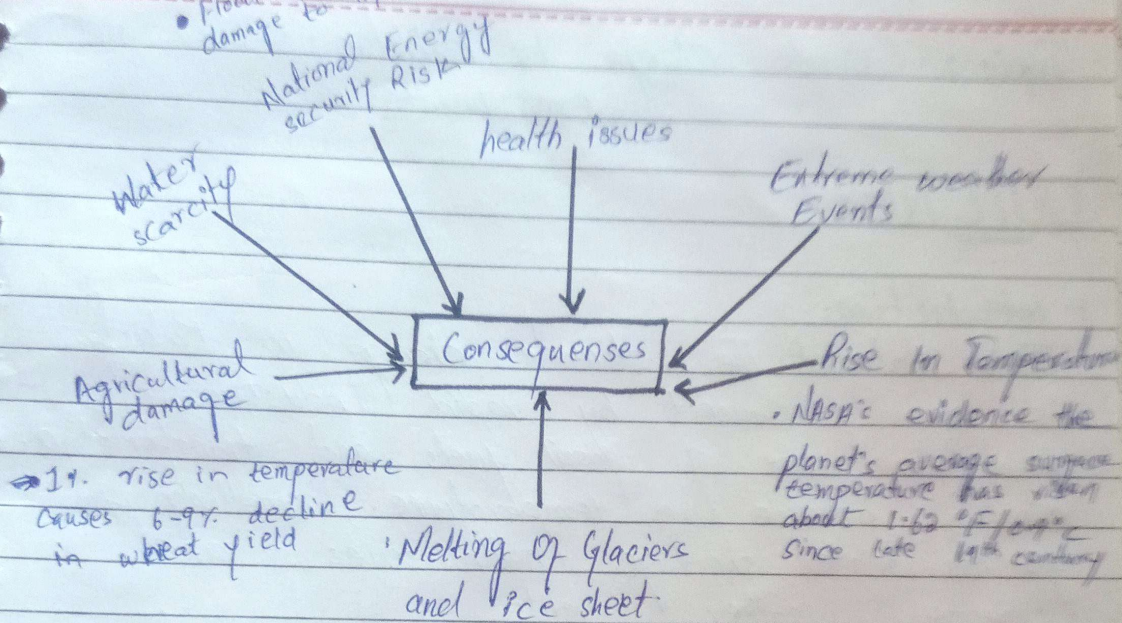 damage to
National Energy
security Risk
health issues
Water
scarcity
Extreme weather
Events
Consequenses
Rise In Temperature
Agricultural
damage
• NASA's evidence the
planet's average surface
temperature has risen
about 1.62 °F/0.9°C
since late 19th century
→ 1%. rise in temperature
causes 6-9%. decline
in wheat yield
Melting Of Glaciers
and ice sheet.